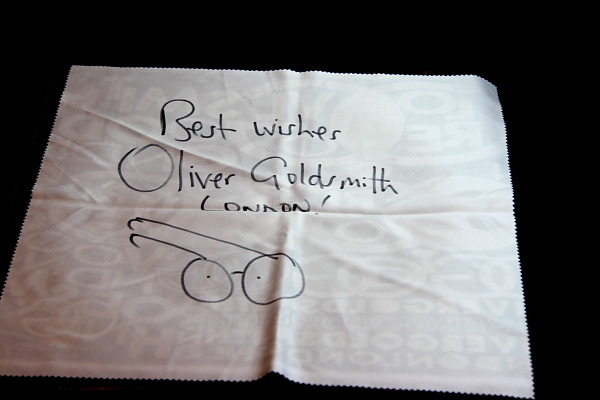 Best wishes
Oliver Goldsmith
LONDON!